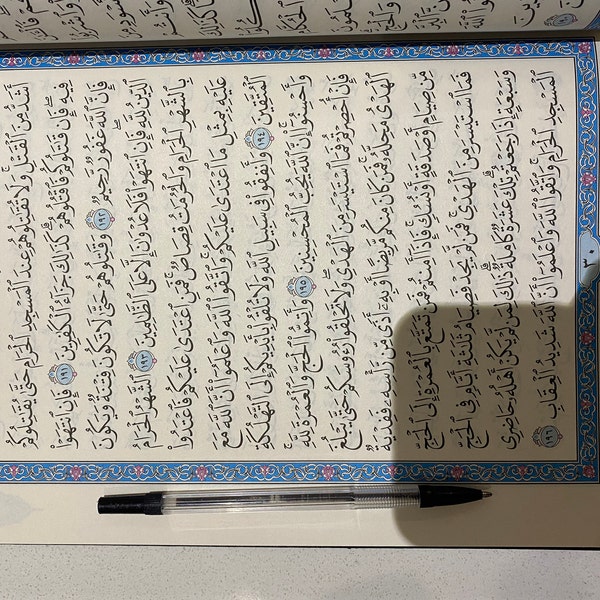 أَشَدُّ مِنَ ٱلْقَتْلِ وَلَا تُقَٰتِلُوهُمْ عِندَ ٱلْمَسْجِدِ ٱلْحَرَامِ حَتَّىٰ يُقَٰتِلُوكُمْ
فِيهِ فَإِن قَٰتَلُوكُمْ فَٱقْتُلُوهُمْ كَذَٰلِكَ جَزَآءُ ٱلْكَٰفِرِينَ ١٩١ فَإِنِ ٱنتَهَوْا۟
فَإِنَّ ٱللَّهَ غَفُورٌ رَّحِيمٌ ١٩٢ وَقَٰتِلُوهُمْ حَتَّىٰ لَا تَكُونَ فِتْنَةٌ وَيَكُونَ
ٱلدِّينُ لِلَّهِ فَإِنِ ٱنتَهَوْا۟ فَلَا عُدْوَٰنَ إِلَّا عَلَى ٱلظَّٰلِمِينَ ١٩٣ ٱلشَّهْرُ ٱلْحَرَامُ
بِٱلشَّهْرِ ٱلْحَرَامِ وَٱلْحُرُمَٰتُ قِصَاصٌ فَمَنِ ٱعْتَدَىٰ عَلَيْكُمْ فَٱعْتَدُوا۟
عَلَيْهِ بِمِثْلِ مَا ٱعْتَدَىٰ عَلَيْكُمْ وَٱتَّقُوا۟ ٱللَّهَ وَٱعْلَمُوٓا۟ أَنَّ ٱللَّهَ مَعَ
ٱلْمُتَّقِينَ ١٩٤ وَأَنفِقُوا۟ فِى سَبِيلِ ٱللَّهِ وَلَا تُلْقُوا۟ بِأَيْدِيكُمْ إِلَى ٱلتَّهْلُكَةِ
وَأَحْسِنُوٓا۟ إِنَّ ٱللَّهَ يُحِبُّ ٱلْمُحْسِنِينَ ١٩٥ وَأَتِمُّوا۟ ٱلْحَجَّ وَٱلْعُمْرَةَ لِلَّهِ
فَإِنْ أُحْصِرْتُمْ فَمَا ٱسْتَيْسَرَ مِنَ ٱلْهَدْىِ وَلَا تَحْلِقُوا۟ رُءُوسَكُمْ حَتَّىٰ يَبْلُغَ
ٱلْهَدْىُ مَحِلَّهُۥ فَمَن كَانَ مِنكُم مَّرِيضًا أَوْ بِهِۦٓ أَذًى مِّن رَّأْسِهِۦ فَفِدْيَةٌ
مِّن صِيَامٍ أَوْ صَدَقَةٍ أَوْ نُسُكٍ فَإِذَآ أَمِنتُمْ فَمَن تَمَتَّعَ بِٱلْعُمْرَةِ إِلَى ٱلْحَجِّ
فَمَا ٱسْتَيْسَرَ مِنَ ٱلْهَدْىِ فَمَن لَّمْ يَجِدْ فَصِيَامُ ثَلَٰثَةِ أَيَّامٍ فِى ٱلْحَجِّ
وَسَبْعَةٍ إِذَا رَجَعْتُمْ تِلْكَ عَشَرَةٌ كَامِلَةٌ ذَٰلِكَ لِمَن لَّمْ يَكُنْ أَهْلُهُۥ حَاضِرِى
ٱلْمَسْجِدِ ٱلْحَرَامِ وَٱتَّقُوا۟ ٱللَّهَ وَٱعْلَمُوٓا۟ أَنَّ ٱللَّهَ شَدِيدُ ٱلْعِقَابِ ١٩٦
٣٠